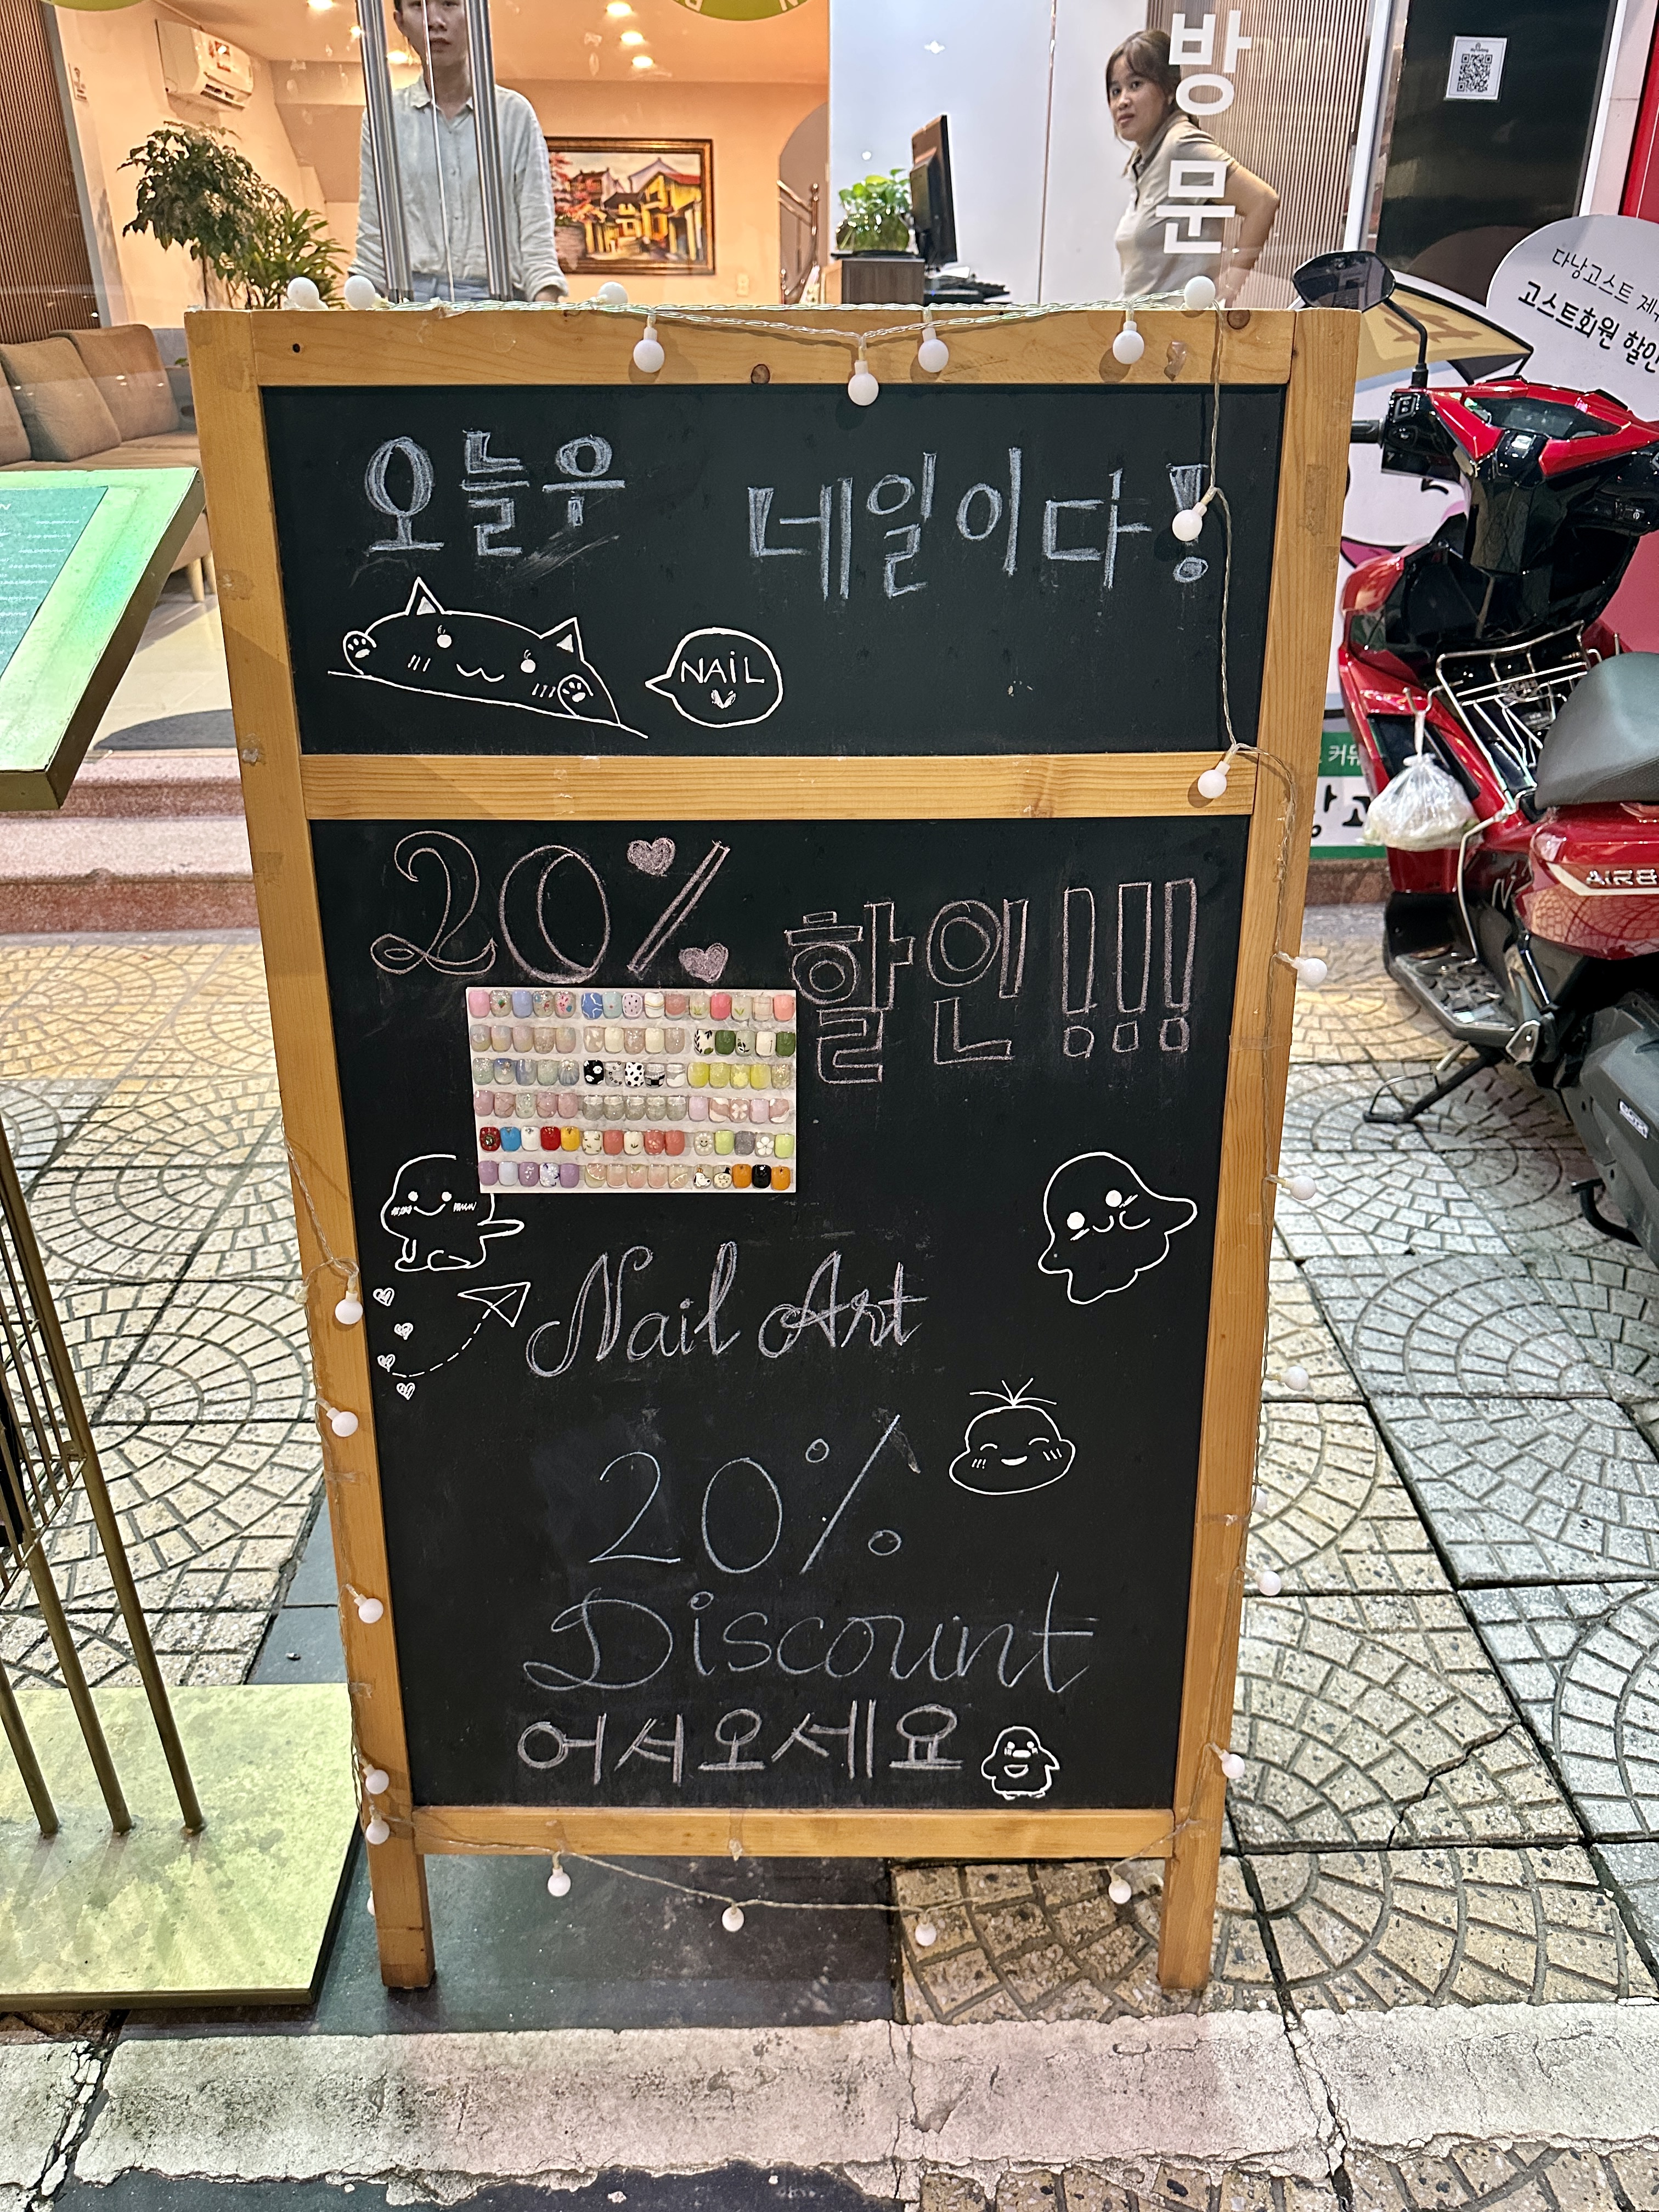 방문
다낭고스트
고스트회원 할인
오늘우 네일이다!
NAIL
20% 할인!!!
Nail Art
20%
Discount
어서오세요